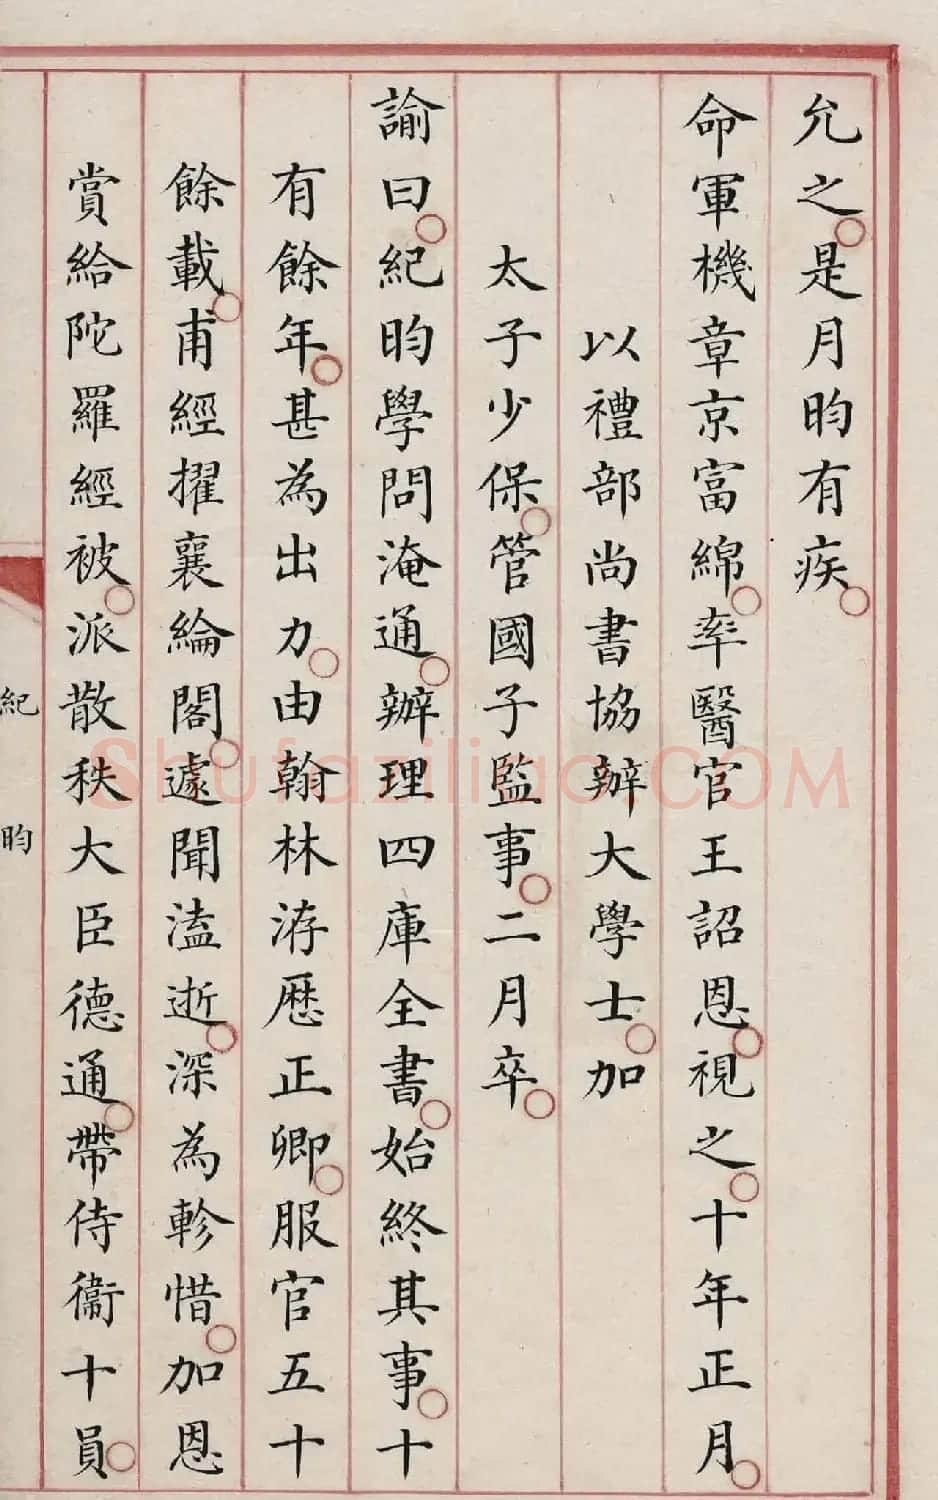 允之○是月昀有疾○
命軍機章京富綿○率醫官王詔恩○視之○十年正月○
以禮部尚書協辦大學士○加
太子少保○管國子監事○二月卒○
諭曰○紀昀學問淹通○辦理四庫全書○始終其事○十
有餘年○甚為出力○由翰林洊歷正卿○服官五十
餘載○甫經擢襄綸閣○遽聞溘逝○深為軫惜○加恩
賞給陀羅經被○派散秩大臣德通○帶侍衛十員○
紀昀
Shufaziliao.COM